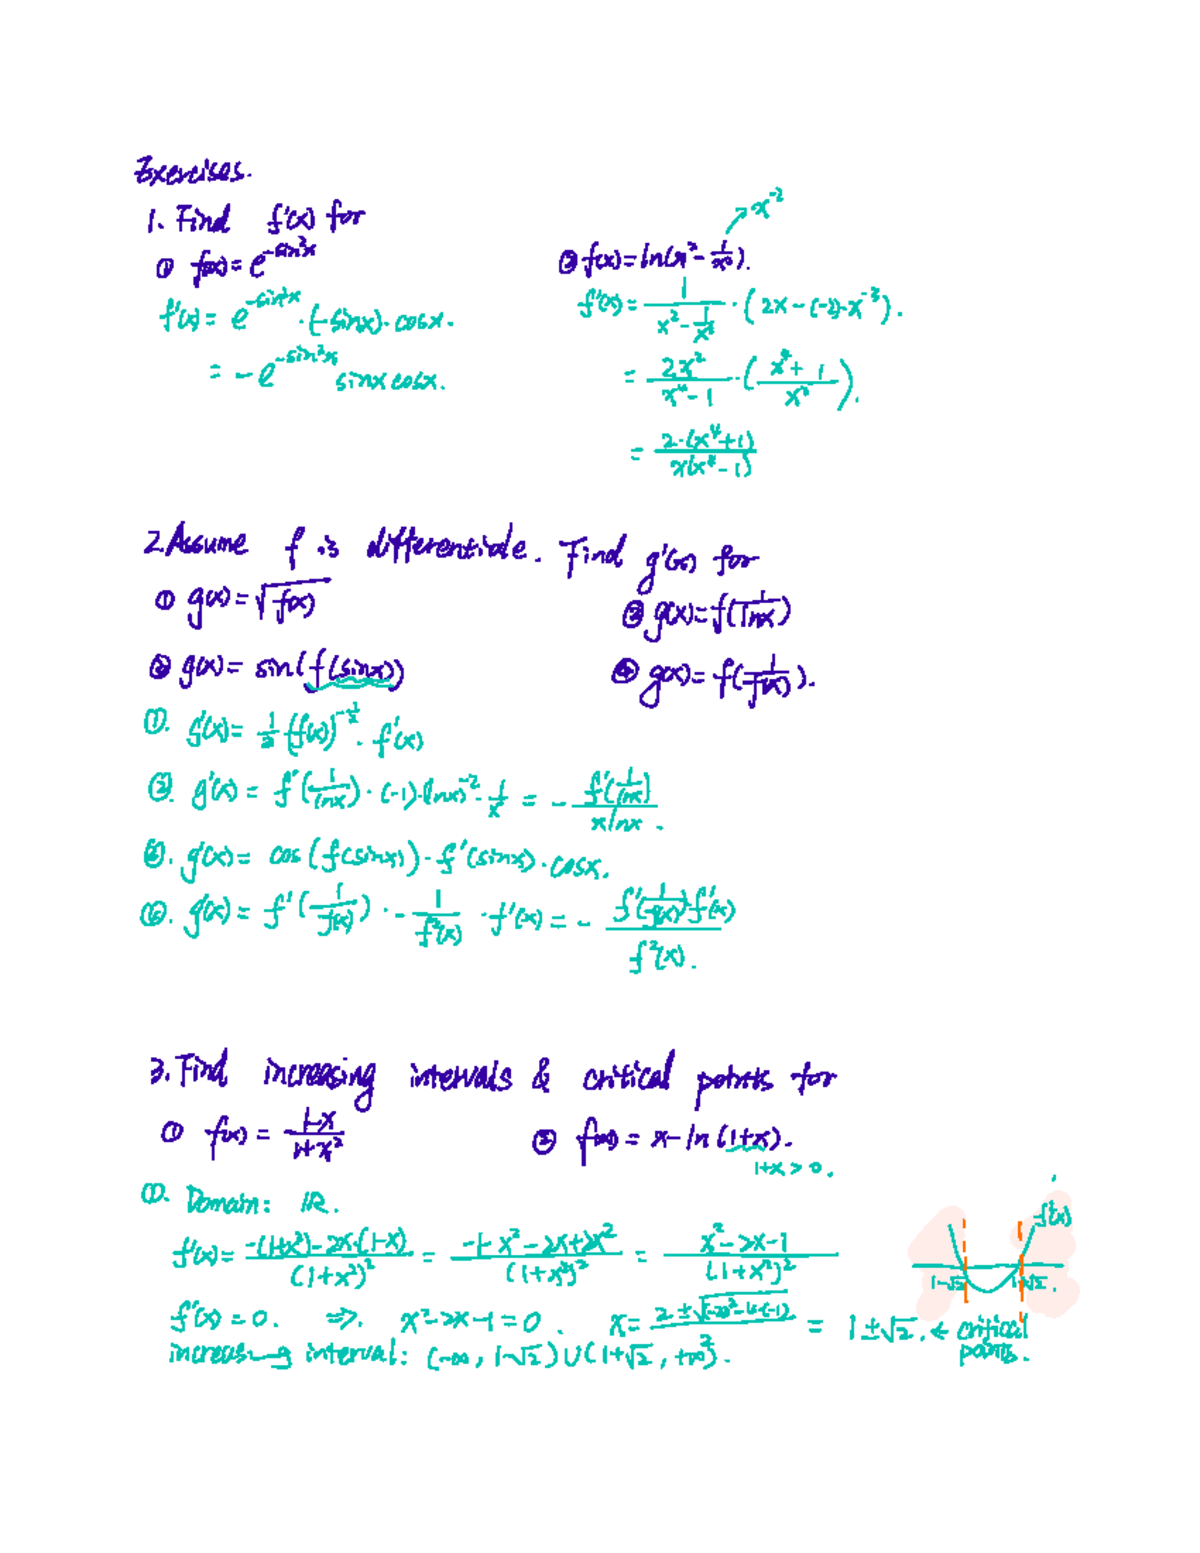 Exercises.
1. Find f'(x) for
① f(x) = e^{-sin²x}
② f(x) = ln(x² - 1/x²). → x^{-2}
f'(x) = e^{-sin²x} · (-sinx) · cosx.
= -e^{-sin²x} sinx cosx.
f'(x) = 1/(x² - 1/x²) · (2x - (-2)·x^{-3}).
= 2x²/(x⁴ - 1) · ((x⁴ + 1)/x³).
= 2·(x⁴+1)/(x(x⁴-1))
2. Assume f is differentiable. Find g'(x) for
① g(x) = √f(x)
③ g(x) = f(1/lnx)
② g(x) = sin(f(sinx))
④ g(x) = f(1/f(x)).
①. g'(x) = 1/2 (f(x))^{-1/2} · f'(x)
g'(x) = f'(1/lnx) · (-1)·(lnx)^{-2} · 1/x = - f'(1/lnx)/(x lnx).
g'(x) = cos(f(sinx)) · f'(sinx) · cosx.
g'(x) = f'(1/f(x)) · - 1/f²(x) · f'(x) = - f'(1/f(x)) f'(x)/f²(x).
3. Find increasing intervals & critical points for
① f(x) = (1-x)/(1+x²)
② f(x) = x - ln(1+x).
1+x > 0.
①. Domain: ℝ.
f'(x) = (-(1+x²) - 2x·(1-x))/(1+x²)² = (-1-x²-2x+2x²)/(1+x²)² = (x²-2x-1)/(1+x²)²
f'(x)
1-√2 1+√2.
f'(x) = 0. ⇒. x²-2x-1 = 0. x = (2±√((-2)²-4·(-1)))/2 = 1±√2. ← critical points.
increasing interval: (-∞, 1-√2)∪(1+√2, +∞).